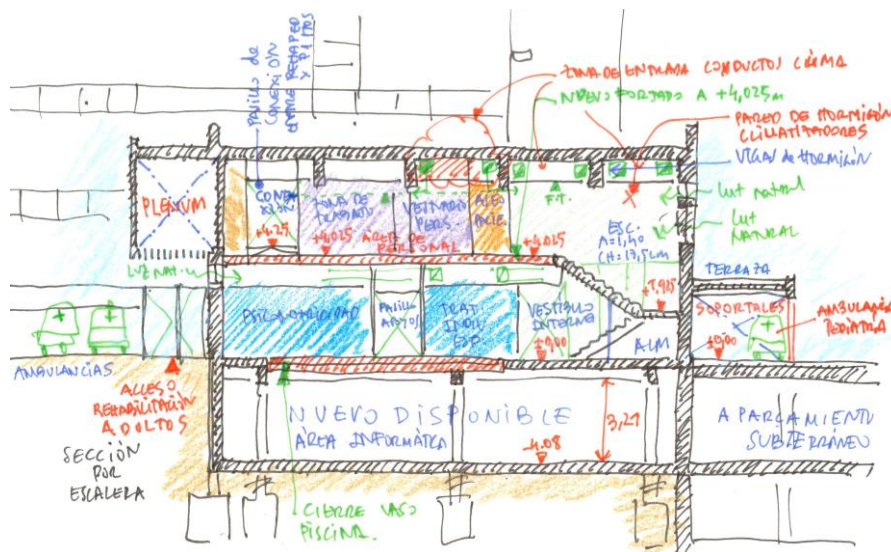 PASILLO DE
CONEXIÓN
ENTRE REHAPED
Y PILTOS
ZONA DE ENTRADA CONDUCTOS CLIMA
NUEVO FORJADO A +4,025m
PARED DE HORMIGÓN
CLIMATIZADORES
VIGAS DE HORMIGÓN
LUZ NATURAL
LUZ
NATURAL
PLENUM
CONEXIÓN
+4.25
ZONA DE
TRABAJO
VESTUARIO
PERS.
ASEO
F.T.
ESC.
A=1,40
CH=17,5cm
+4.025 ÁREA DE
PERSONAL
+4.025
LUZ NAT.
+1,925
TERRAZA
PSICOMOTRICIDAD
PASILLO
APOYOS
TRAT.
INDIV.
ESP.
VESTÍBULO
INTERNO
±0,00
ALM
SOPORTALES
±0,00
AMBULANCIA
PEDIATRÍA
AMBULANCIAS
ACCESO
REHABILITACIÓN
ADULTOS
NUEVO DISPONIBLE
ÁREA INFORMÁTICA
-4.08
3,27
APARCAMIENTO
SUBTERRÁNEO
SECCIÓN
POR
ESCALERA
CIERRE VASO
PISCINA.